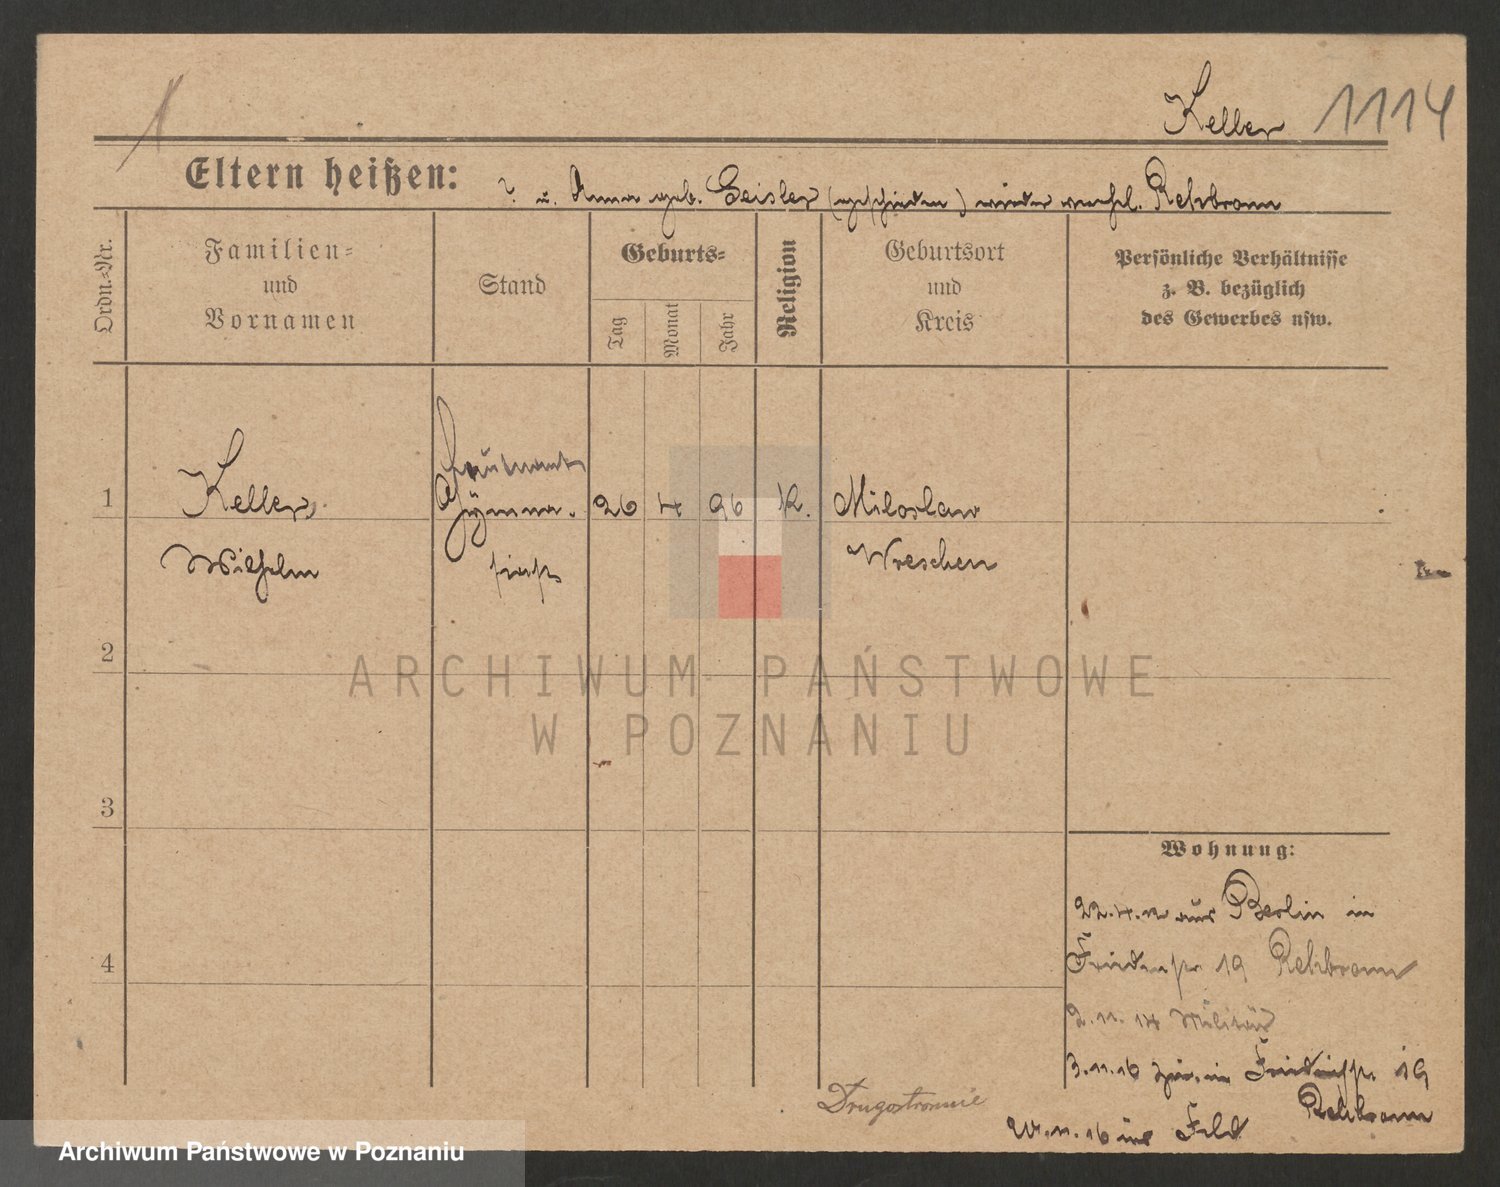 1
Keller 1114
Eltern heißen: ? u. Anna geb. Geisler (geschieden) wieder verehel. Rehbronn
Ordn.-Nr.
Familien-
und
Vornamen
Stand
Geburts-
Tag
Monat
Jahr
Religion
Geburtsort
und
Kreis
Persönliche Verhältnisse
z. B. bezüglich
des Gewerbes usw.
1
Keller,
Wilhelm
Leutnant
Gymna-
siast
26 4 96 K.
Miloslaw
Wreschen
2
3
4
ARCHIWUM PAŃSTWOWE
W POZNANIU
Wohnung:
22.4.12 aus Berlin in
Friedenstr 19 Rehbronn
2.11.14 Militär
3.11.16 in Friedenstr. 19
Rehbronn
11.16 ins Feld
Drugostronnie
Archiwum Państwowe w Poznaniu